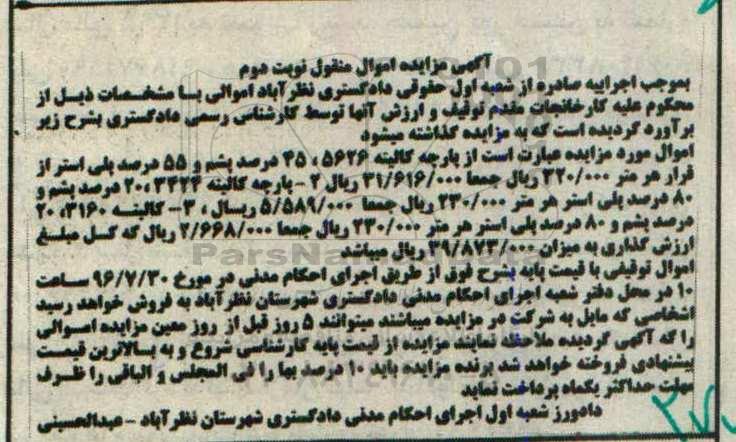 آگهی مزایده اموال منقول نوبت دوم
بموجب اجرائیه صادره از شعبه اول حقوقی دادگستری نظرآباد اموالی با مشخصات ذیل از
محکوم علیه کارخانجات مقدم توقیف و ارزش آنها توسط کارشناس رسمی دادگستری بشرح زیر
برآورد گردیده است که به مزایده گذاشته میشود
اموال مورد مزایده عبارت است از پارچه کالیته ۵۶۲۶ ، ۴۵ درصد پشم و ۵۵ درصد پلی استر از
قرار هر متر ۳۲۰/۰۰۰ ریال جمعا ۳۱/۶۱۶/۰۰۰ ریال ۲ - پارچه کالیته ۳۳۲۴ ، ۲۰ درصد پشم و
۸۰ درصد پلی استر هر متر ۲۳۰/۰۰۰ ریال جمعا ۵/۵۸۹/۰۰۰ ریسال ، ۳- کالیته ۳۱۶۰، ۲۰
درصد پشم و ۸۰ درصد پلی استر هر متر ۲۳۰/۰۰۰ ریال جمعا ۲/۶۶۸/۰۰۰ ریال که کل مبلغ
ارزش گذاری به میزان ۳۹/۸۷۳/۰۰۰ ریال میباشد
ParsNamadData
اموال توقیفی با قیمت پایه بشرح فوق از طریق اجرای احکام مدنی در مورخ ۹۶/۷/۳۰ ساعت
۱۰ در محل دفتر شعبه اجرای احکام مدنی دادگستری شهرستان نظرآباد به فروش خواهد رسید
اشخاصی که مایل به شرکت در مزایده میباشند میتوانند ۵ روز قبل از روز معین مزایده اموالی
را که آگهی گردیده ملاحظه نمایند مزایده از قیمت پایه کارشناسی شروع و به بالاترین قیمت
پیشنهادی فروخته خواهد شد برنده مزایده باید ۱۰ درصد بها را فی المجلس و الباقی را ظرف
مهلت حداکثر یکماه پرداخت نماید
دادورز شعبه اول اجرای احکام مدنی دادگستری شهرستان نظرآباد - عبدالحسینی